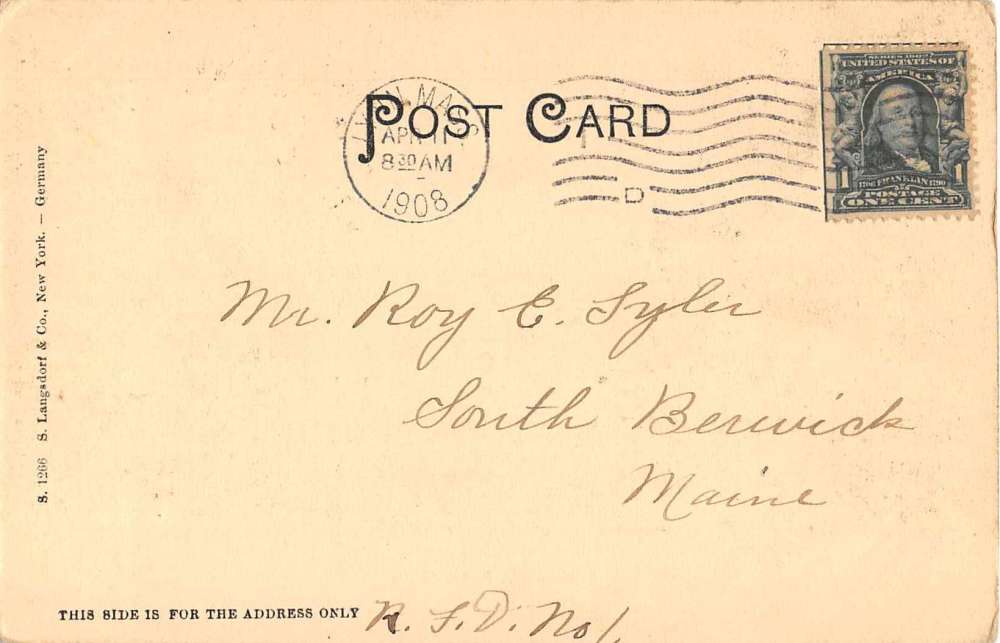 POST CARD
LYNN, MASS.
APR 11
8 30 AM
1908
D
SERIES 1902
UNITED STATES OF
AMERICA
1 1706 FRANKLIN 1790 1
POSTAGE
ONE CENT
Mr. Roy E. Tyler
South Berwick
Maine
R. F. D. No 1.
THIS SIDE IS FOR THE ADDRESS ONLY
S. 1266 S. Langsdorf & Co., New York. — Germany